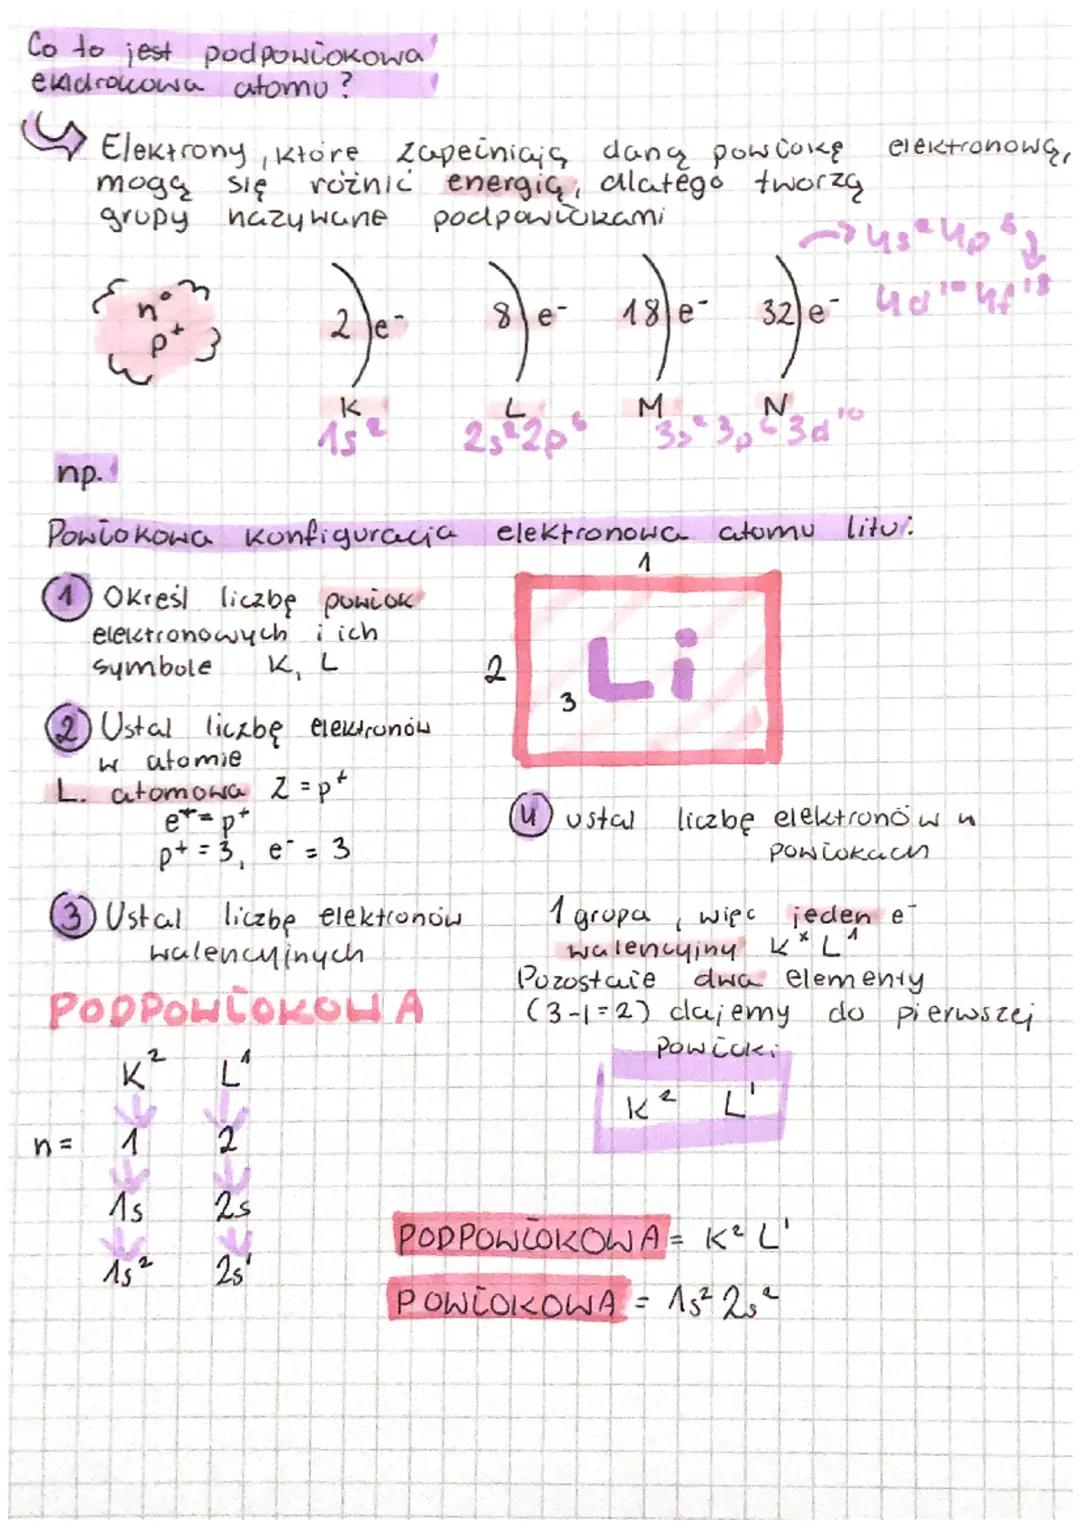 Co to jest podpowłokowa
elektronowa atomu?
Elektrony, które zapełniają daną powłokę elektronową,
mogą się różnić energią, dlatego tworzą
grupy nazywane podpowłokami
→ 4s² 4p⁶
4d¹⁰ 4f¹⁸
n⁰
p⁺
2 e⁻ 8 e⁻ 18 e⁻ 32 e⁻
K L M N
1s² 2s² 2p⁶ 3s² 3p⁶ 3d¹⁰
np.
Powłokowa konfiguracja elektronowa atomu litu:
1
① Określ liczbę powłok
elektronowych i ich
symbole K, L
2
3 Li
② Ustal liczbę elektronów
w atomie
L. atomowa Z = p⁺
e⁺ = p⁺
p⁺ = 3, e⁻ = 3
③ Ustal liczbę elektronów
walencyjnych
④ ustal liczbę elektronów w
powłokach
1 grupa, więc jeden e⁻
walencyjny Kˣ L¹
Pozostałe dwa elementy
(3-1=2) dajemy do pierwszej
powłoki
K² L¹
PODPOWŁOKOWA
K² L¹
n = 1 2
1s 2s
1s² 2s¹
PODPOWŁOKOWA = K² L¹
POWŁOKOWA = 1s² 2s²